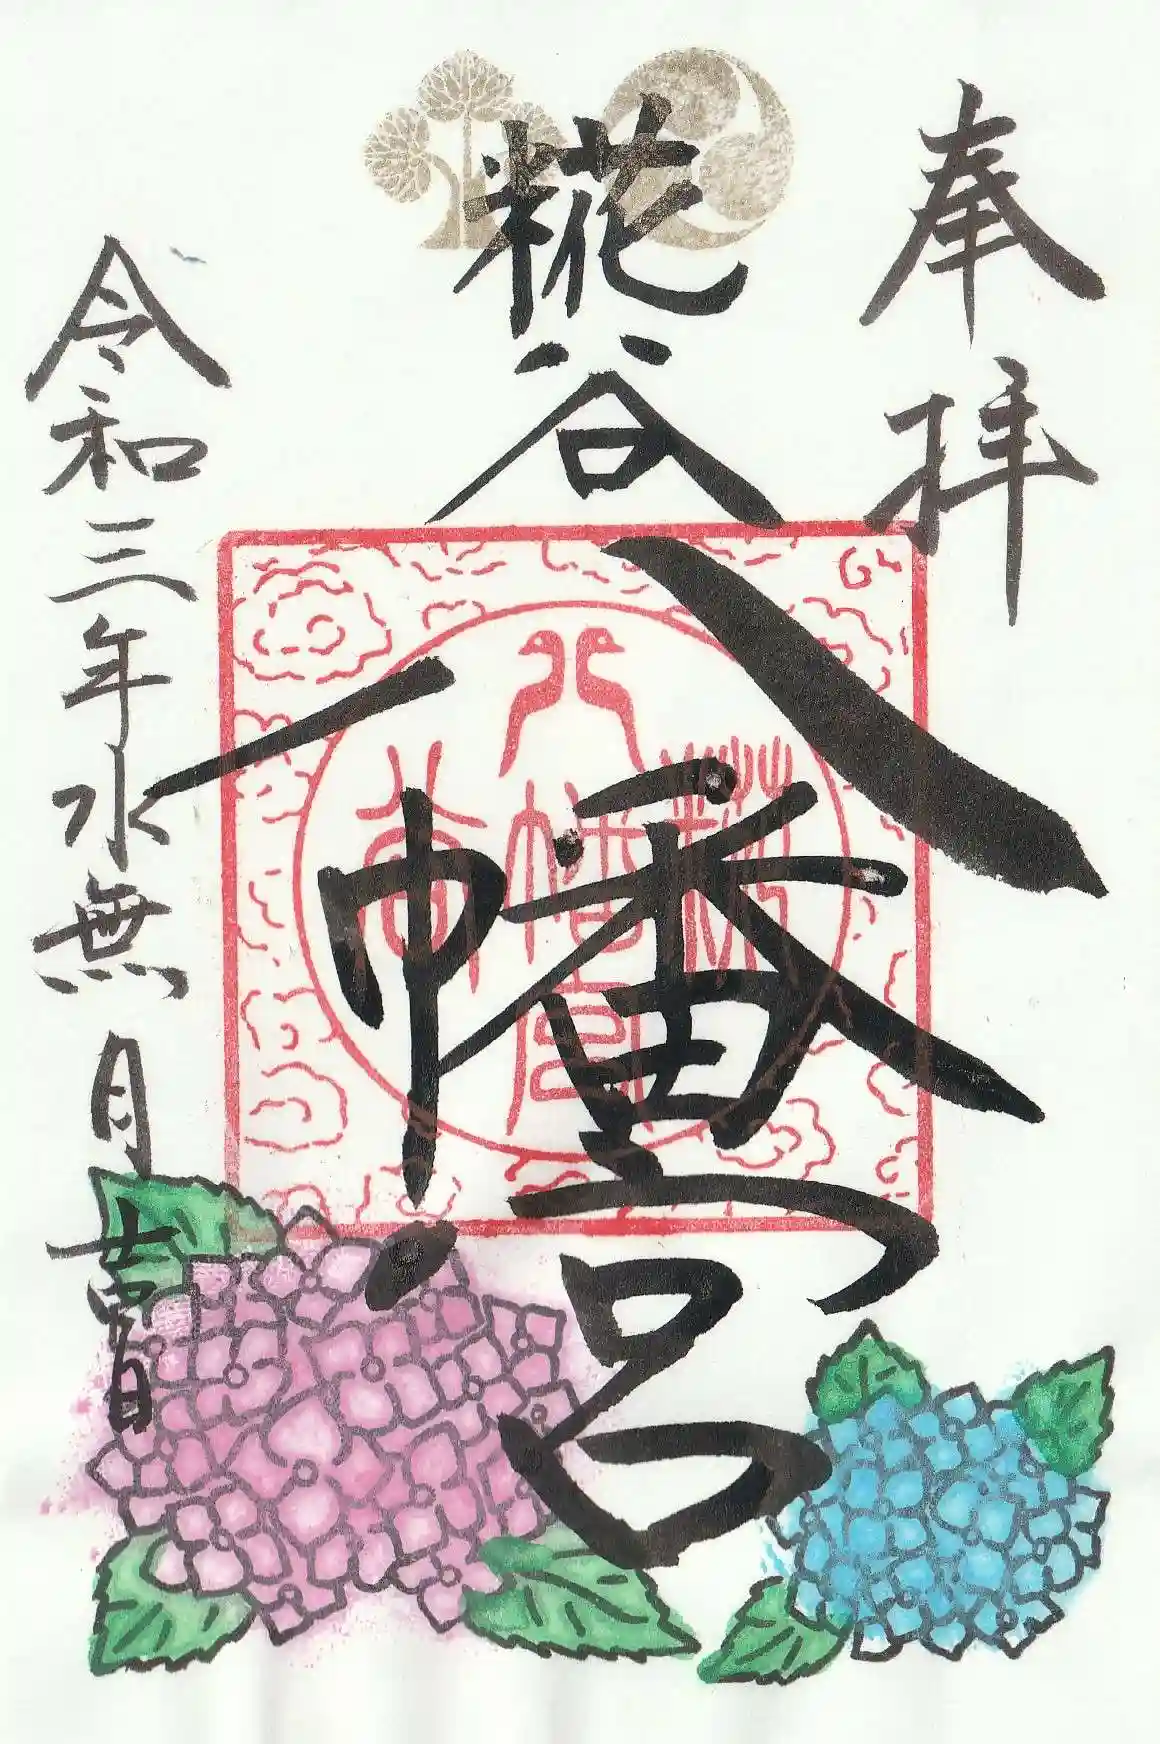 奉拝
糀谷
八幡宮
令和三年水無月廿日
糀谷八幡宮